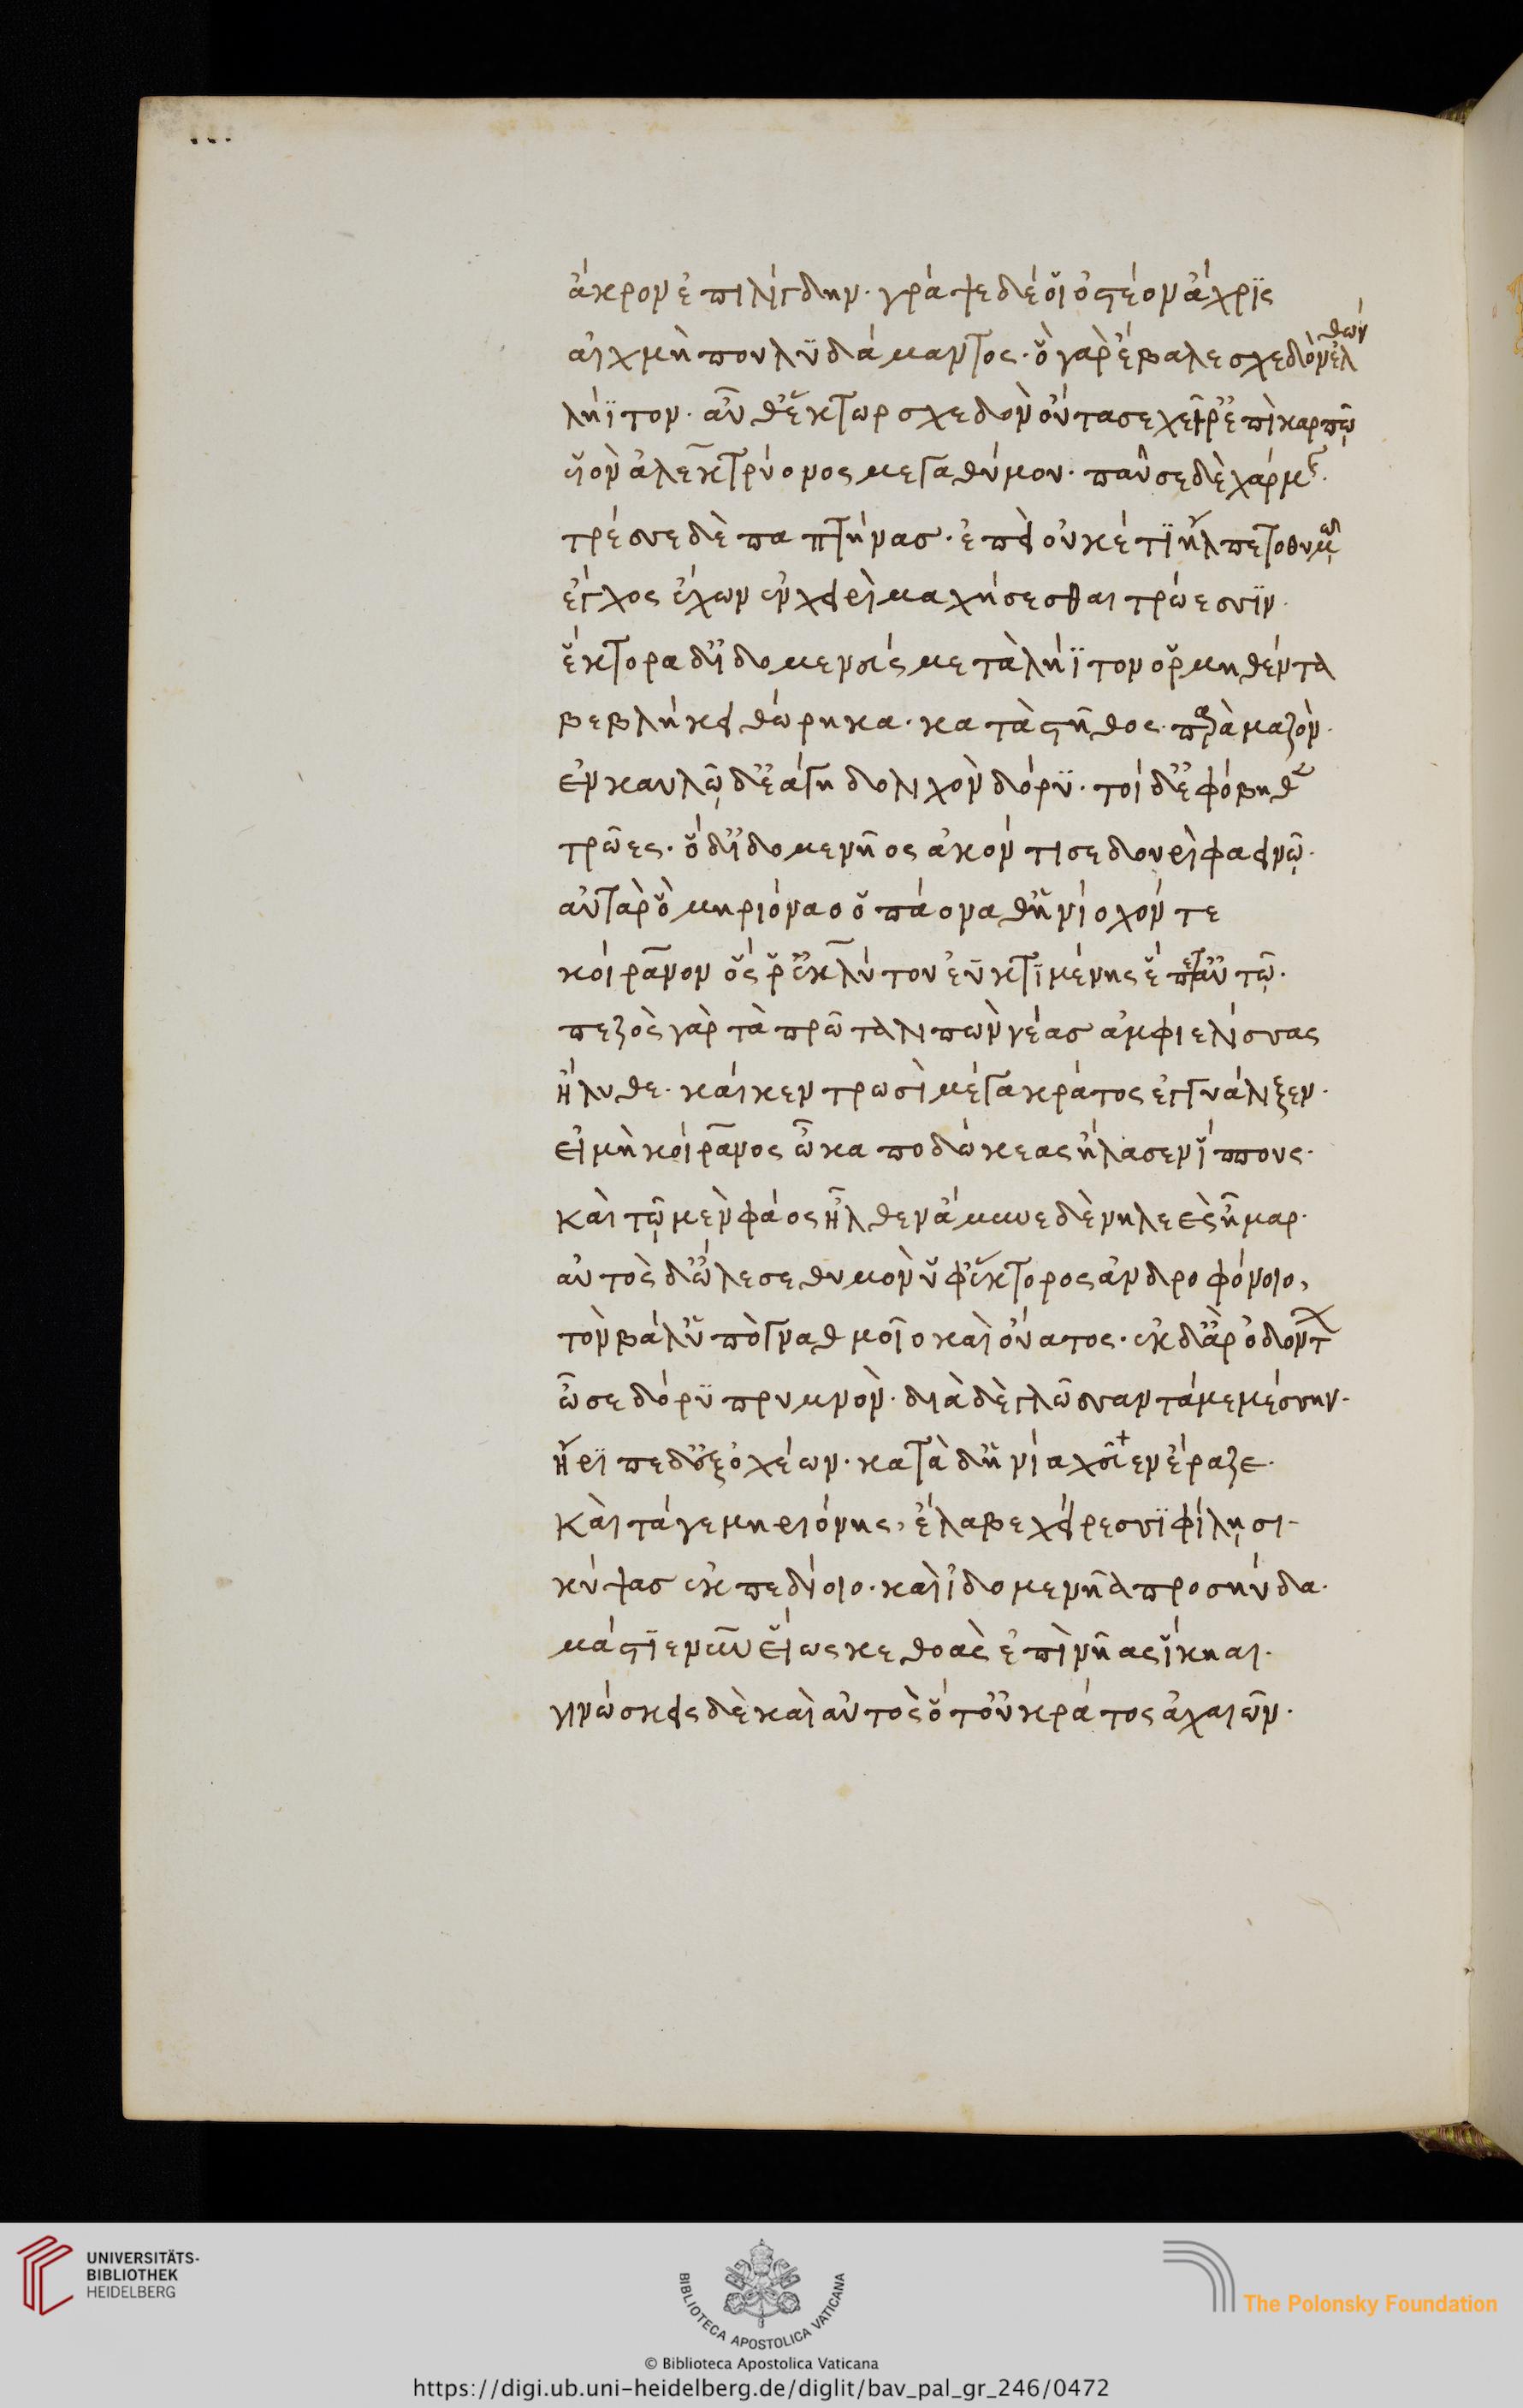 ἄκρον ἐπιλίγδην· γράψε δέ οἱ ὀστέον ἄχρις
αἰχμὴ πουλυδάμαντος· ὁ γάρ ῥ' ἔβαλε σχεδὸν ἐλθών
λήϊτον· αὖθ' ἕκτωρ σχεδὸν οὔτασε χεῖρ' ἐπὶ καρπῷ
υἱὸν ἀλεκτρυόνος μεγαθύμου· παῦσε δὲ χάρμης·
τρέσσε δὲ παπτήνας· ἐπεὶ οὐκέτι ἤλπετο θυμῷ
ἔγχος ἔχων ἐν χειρὶ μαχήσεσθαι τρώεσσιν·
ἕκτορα δ' ἰδομενεὺς μετὰ λήϊτον ὁρμηθέντα
βεβλήκει θώρηκα· κατὰ στῆθος παρὰ μαζόν·
ἐν καυλῷ δ' ἐάγη δολιχὸν δόρυ· τοὶ δ' ἐφόβηθεν
τρῶες· ὁ δ' ἰδομενῆος ἀκόντισε δουρὶ φαεινῷ·
αὐτὰρ ὁ μηριόναο ὀπάονα θ' ἡνίοχόν τε
κοίρανον ὅς ῥ' ἐκ λύκτου ἐϋκτιμένης ἕπετ' αὐτῷ·
πεζὸς γὰρ τὰ πρῶτα λιπὼν νέας ἀμφιελίσσας
ἤλυθε· καί κεν τρωσὶ μέγα κράτος ἐγγυάλιξεν·
εἰ μὴ κοίρανος ὦκα ποδώκεας ἤλασεν ἵππους·
καὶ τῷ μὲν φάος ἦλθεν ἄμυνε δὲ νηλεὲς ἦμαρ·
αὐτὸς δ' ὤλεσε θυμὸν ὑφ' ἕκτορος ἀνδροφόνοιο,
τὸν βάλ' ὑπὸ γναθμοῖο καὶ οὔατος· ἐκ δ' ἄρ' ὀδόντας
ὦσε δόρυ πρυμνόν· διὰ δὲ γλῶσσαν τάμε μέσσην·
ἤριπε δ' ἐξ ὀχέων· κατὰ δ' ἡνία χεῦεν ἔραζε·
καὶ τά γε μηριόνης, ἔλαβε χείρεσσι φίλῃσι·
κύψας ἐκ πεδίοιο· καὶ ἰδομενῆα προσηύδα·
μάστιε νῦν εἵως κε θοὰς ἐπὶ νῆας ἵκηαι·
γινώσκεις δὲ καὶ αὐτὸς ὅ τ' οὐ κράτος ἀχαιῶν·
UNIVERSITÄTS-
BIBLIOTHEK
HEIDELBERG
BIBLIOTECA APOSTOLICA VATICANA
The Polonsky Foundation
© Biblioteca Apostolica Vaticana
https://digi.ub.uni-heidelberg.de/diglit/bav_pal_gr_246/0472